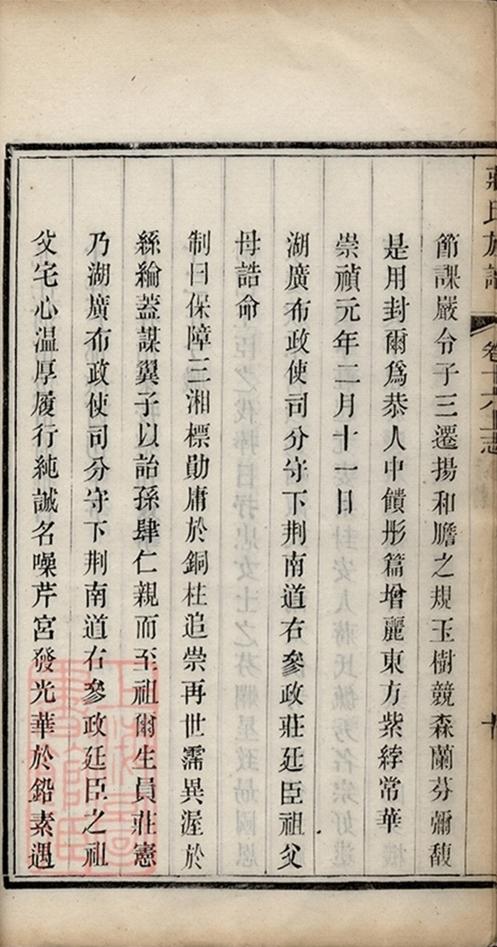 莊氏族譜
節課嚴令子三遷揚和膽之規玉樹競森蘭芬彌馥
是用封爾爲恭人中饋彤篇增麗東方紫綍常華
崇禎元年二月十一日
湖廣布政使司分守下荆南道右參政莊廷臣祖父
母誥命
制曰保障三湘標勛庸於銅柱追崇再世霈異渥於
絲綸蓋謀翼子以詒孫肆仁親而至祖爾生員莊憲
乃湖廣布政使司分守下荆南道右參政廷臣之祖
父宅心温厚履行純誠名噪芹宮發光華於鉛素遇